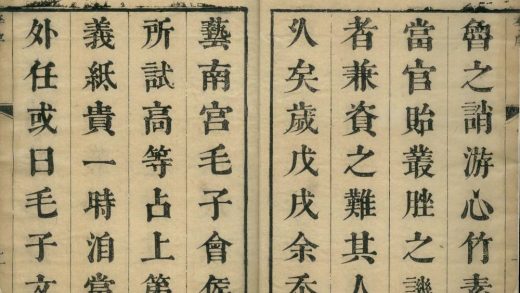 魯之誚游心竹素
當官貽叢脞之譏
者兼資之難其人
久矣歲戊戌余忝
藝南宮毛子會侯
所試高等占上第
義紙貴一時洎當
外任或曰毛子文